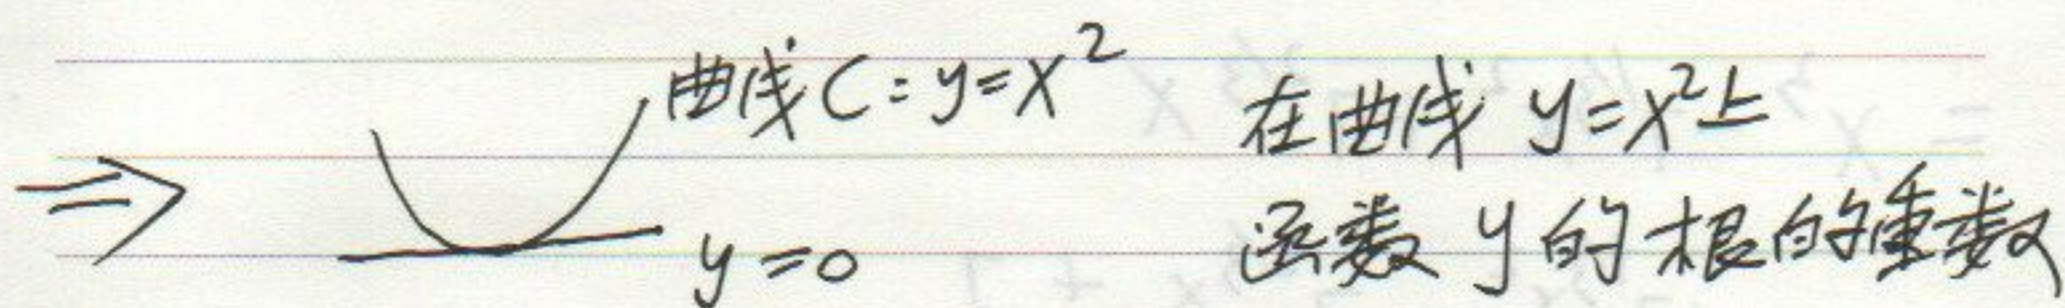 ⇒ 曲线 C：y=x² 在曲线 y=x²上
y=0 函数 y 的根的重数